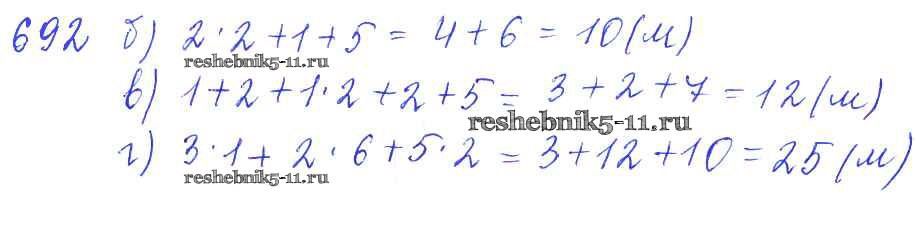 692 б) 2·2+1+5 = 4+6 = 10(м)
reshebnik5-11.ru
в) 1+2+1·2+2+5 = 3+2+7 = 12(м)
reshebnik5-11.ru
г) 3·1+2·6+5·2 = 3+12+10 = 25(м)
reshebnik5-11.ru